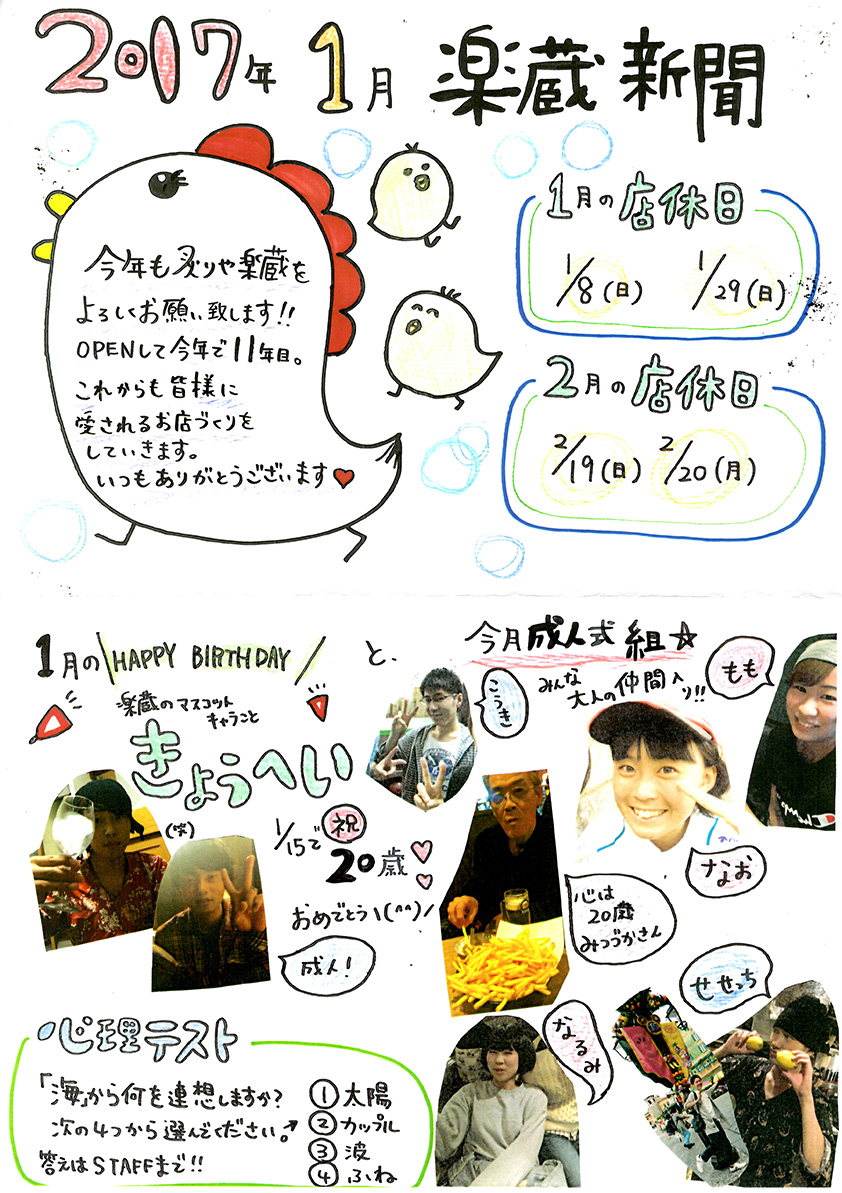 2017年 1月 楽蔵新聞
今年も炙りや楽蔵を
よろしくお願い致します!!
OPENして今年で11年目。
これからも皆様に
愛されるお店づくりを
していきます。
いつもありがとうございます♥
1月の店休日
1/8(日) 1/29(日)
2月の店休日
2/19(日) 2/20(月)
1月の\HAPPY BIRTHDAY/ と、
楽蔵のマスコット
キャラこと
きょうへい
(笑)
1/15で㊗
20歳♥
おめでとう\(^^)/
成人!
今月成人式組☆
みんな
大人の仲間入り!!
こうき
もも
なお
心は
20歳
みつづかさん
せせっち
なるみ
心理テスト
「海」から何を連想しますか?
次の4つから選んでください。↗
答えはSTAFFまで!!
① 太陽
② カップル
③ 波
④ ふね